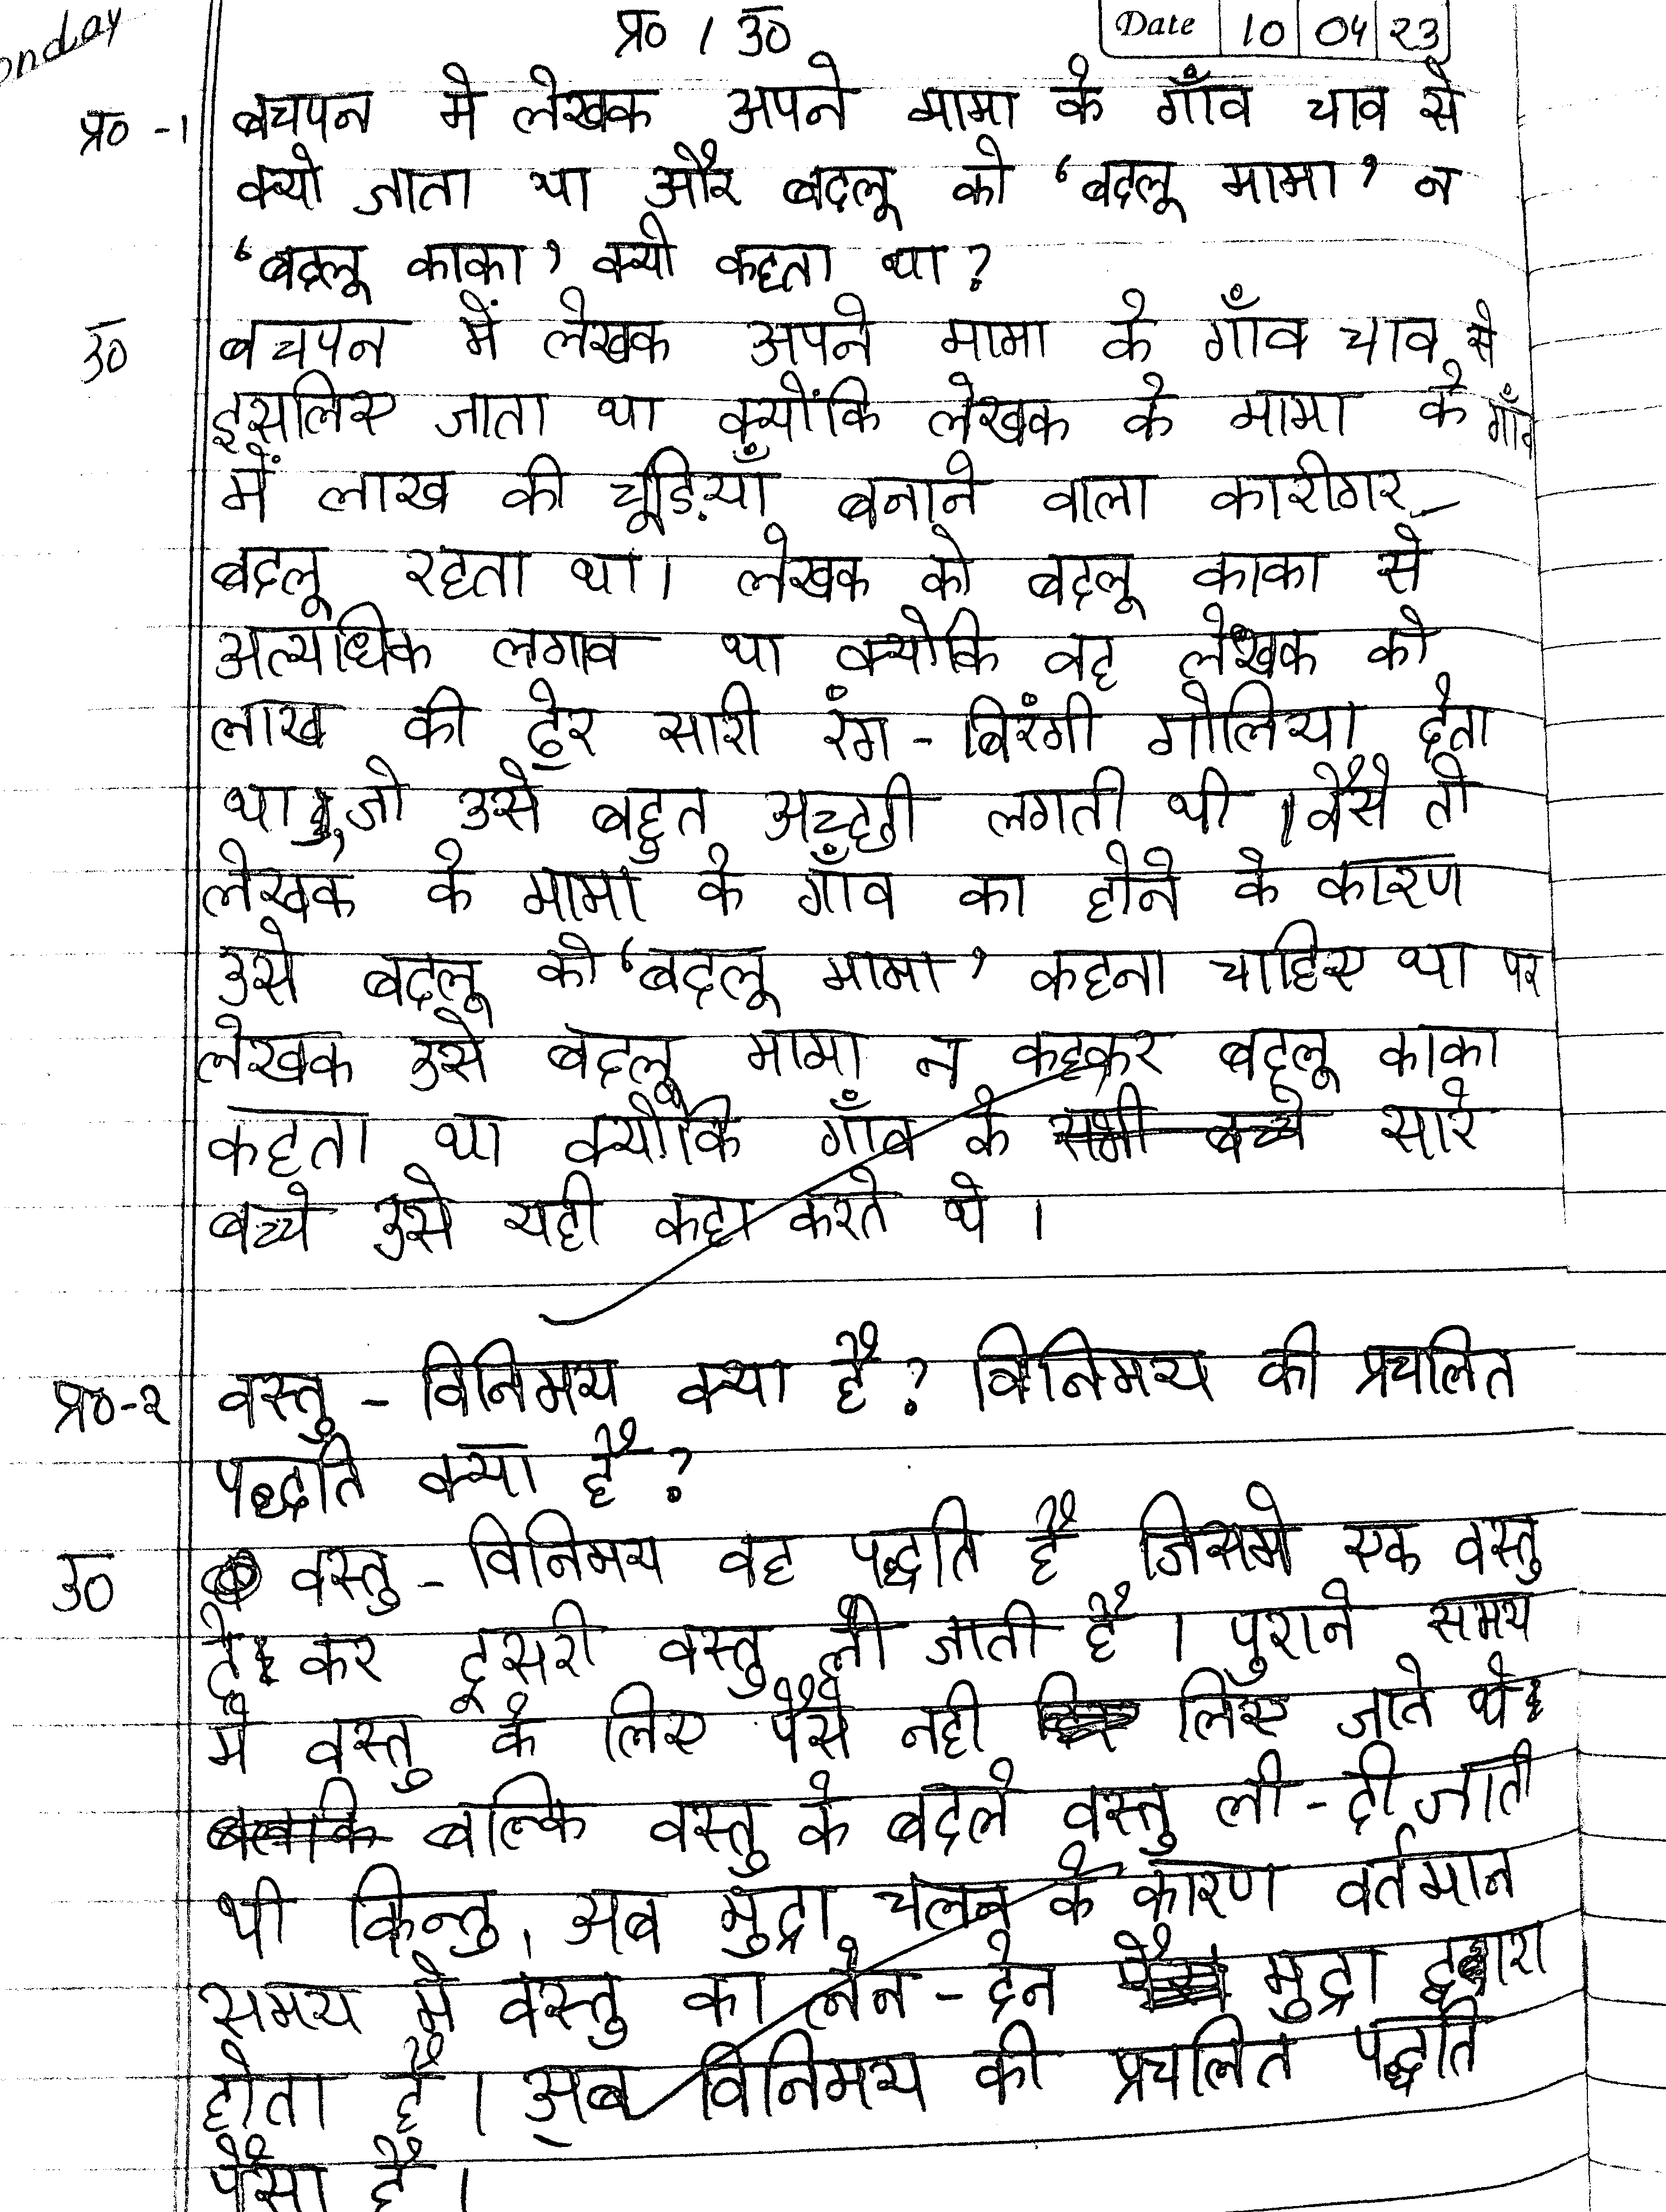 प्र० / उ०
Date 10 04 23
प्र० -1 बचपन मे लेखक अपने मामा के गाँव चाव से
क्यो जाता था और बदलू को 'बदलू मामा' न
'बदलू काका' क्यो कहता था?
उ० बचपन में लेखक अपने मामा के गाँव चाव से
इसलिए जाता था क्योंकि लेखक के मामा के गाँव
में लाख की चूड़ियाँ बनाने वाला कारीगर
बदलू रहता था। लेखक को बदलू काका से
अत्याधिक लगाव था क्योकि वह लेखक को
लाख की ढ़ेर सारी रंग - बिरंगी गोलिया देता
था, जो उसे बहुत अच्छी लगती थी । वैसे तो
लेखक के मामा के गाँव का होने के कारण
उसे बदलू को 'बदलू मामा' कहना चाहिए था पर
लेखक उसे बदलू मामा न कहकर बदलू काका
कहता था क्योकि गाँव के सभी बच्चे सारे
बच्चे उसे यही कहा करते थे ।
प्र०-२ वस्तु - विनिमय क्या है? विनिमय की प्रचलित
पद्धति क्या है?
उ० वस्तु - विनिमय वह पद्धति है जिसमे एक वस्तु
दे कर दूसरी वस्तु ली जाती है । पुराने समय
मे वस्तु के लिए पैसे नही लिए जाते थे
बल्कि वस्तु के बदले वस्तु ली - दी जाती
थी किन्तु, अब मुद्रा चलन के कारण वर्तमान
समय मे वस्तु का लेन - देन मुद्रा द्वारा
होता है । अब विनिमय की प्रचलित पद्धति
पैसा है ।